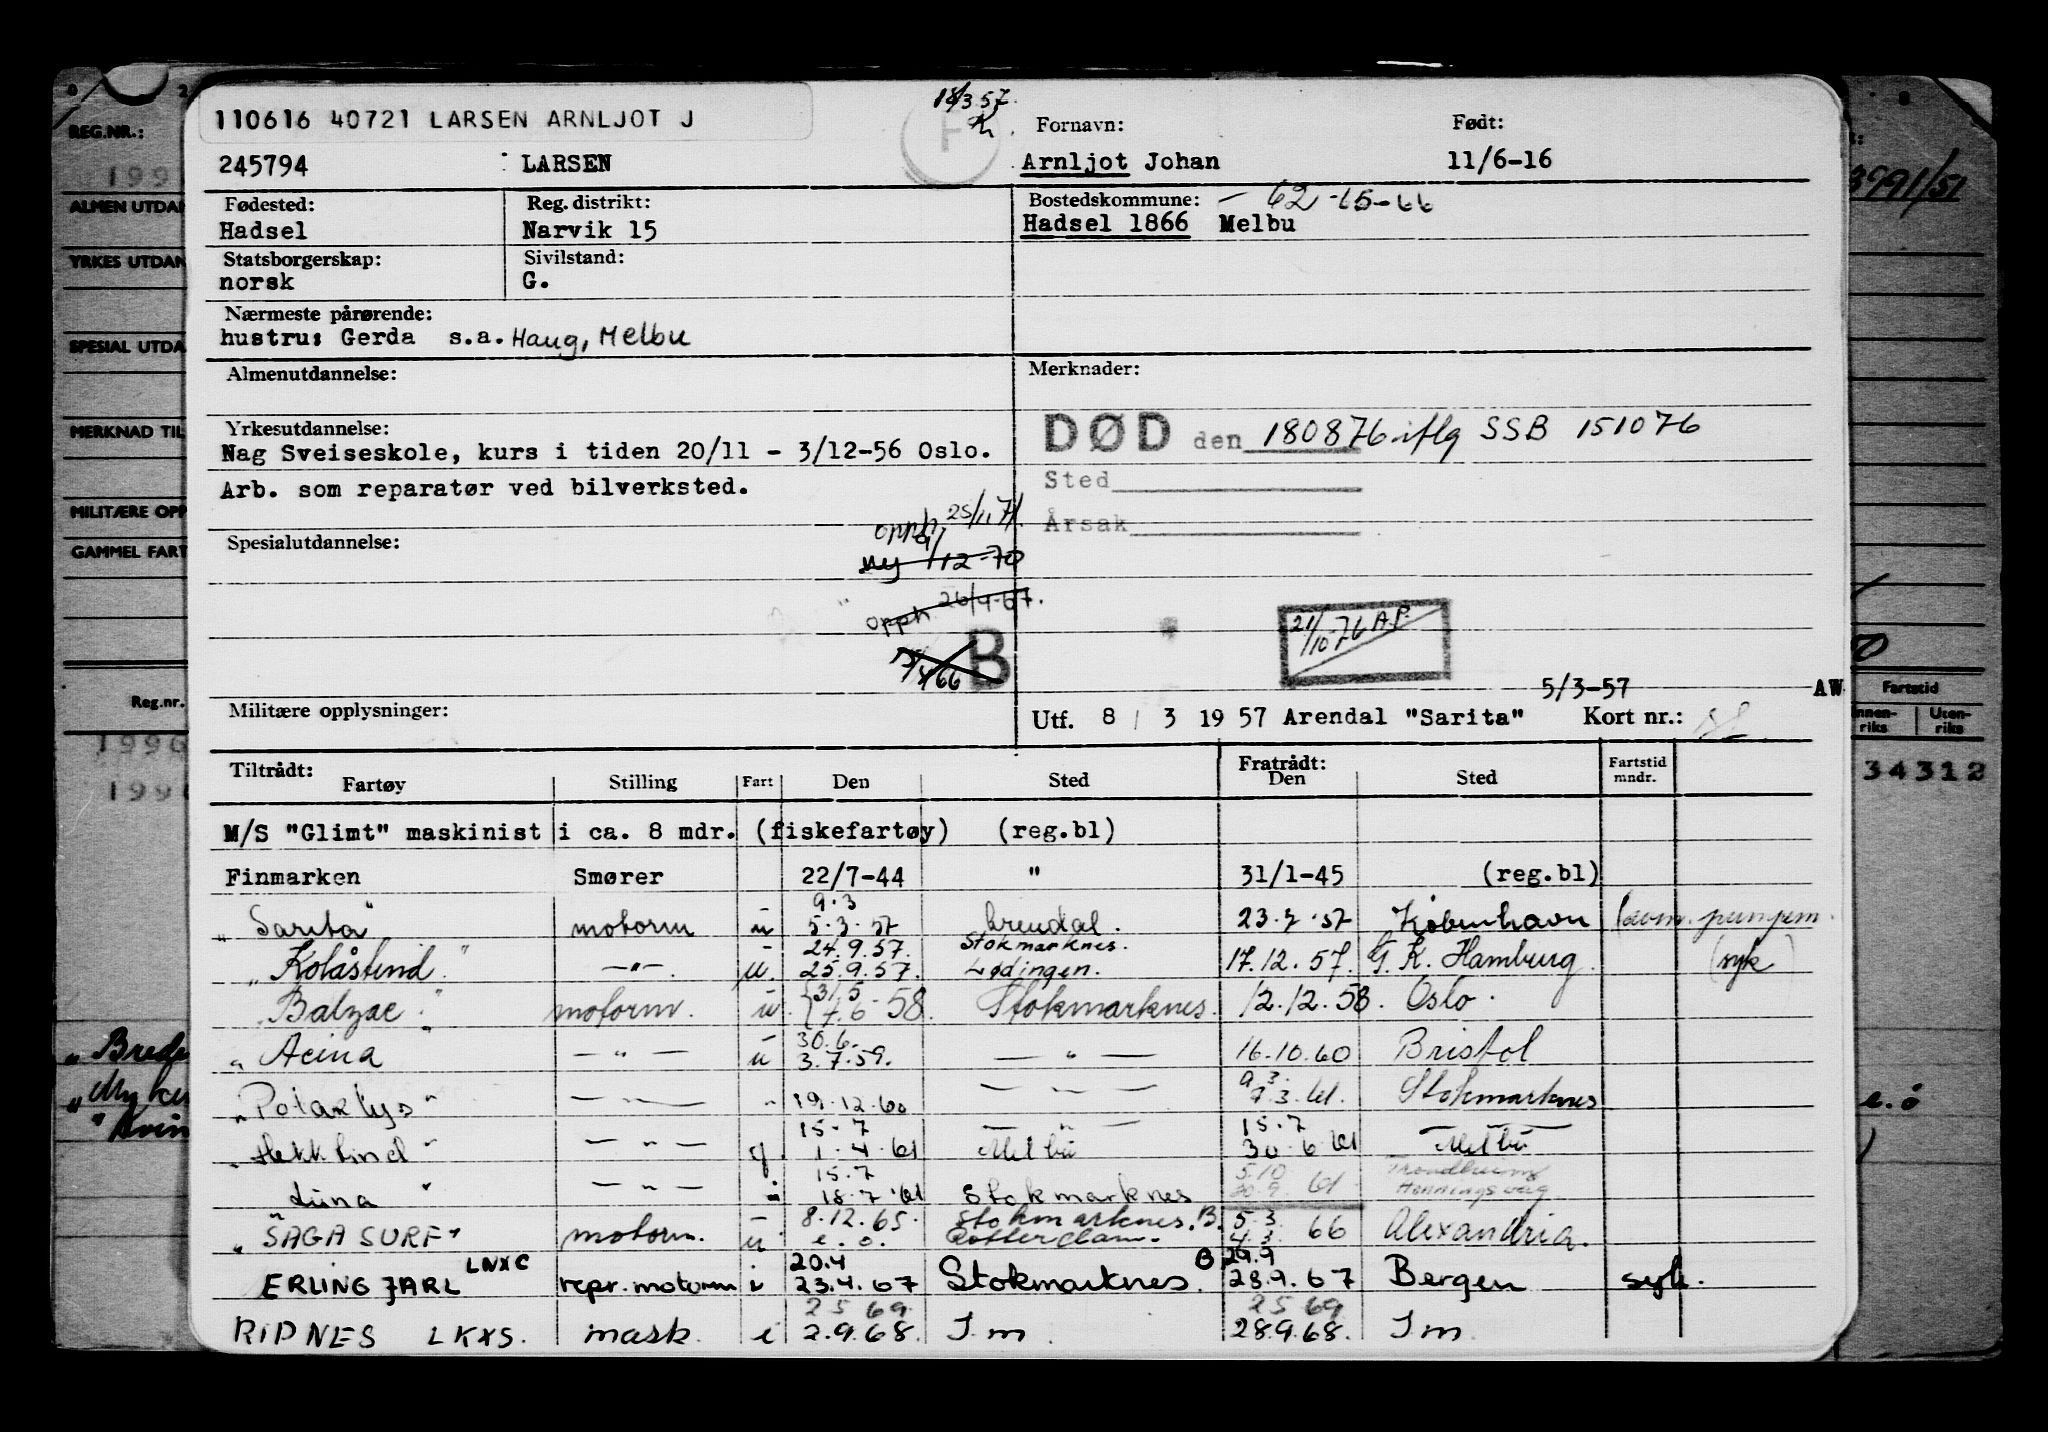 110616 40721 LARSEN ARNLJOT J
18/3 57.
F
REG.NR.:
Fornavn:
Født:
245794 LARSEN
Arnljot Johan
11/6-16
3991/51
ALMEN UTDAN
Fødested:
Reg. distrikt:
Bostedskommune: - 62-65-66
Hadsel
Narvik 15
Hadsel 1866 Melbu
YRKES UTDAN
Statsborgerskap:
Sivilstand:
norsk
G.
Nærmeste pårørende:
hustru: Gerda s.a. Haug, Melbu
SPESIAL UTDA
Almenutdannelse:
Merknader:
MERKNAD TIL
Yrkesutdannelse:
DØD den 180876 iflg SSB 151076
Nag Sveiseskole, kurs i tiden 20/11 - 3/12-56 Oslo.
Sted
Arb. som reparatør ved bilverksted.
MILITÆRE OPP
opph. 25/1.71.
Årsak
GAMMEL FART
Spesialutdannelse:
ny 9/12-70
opph 26/9-67.
15/4/66 B
21/10-76 A.P.
5/3-57 AW
Reg.nr.
Fartstid
Militære opplysninger:
Utf. 8 / 3 19 57 Arendal "Sarita" Kort nr.:
Innen-riks Uten-riks
Tiltrådt:
Fartøy Stilling Fart Den Sted
Fratrådt:
Den Sted
Fartstid mndr.
34312
M/S "Glimt" maskinist i ca. 8 mdr. (fiskefartøy) (reg.bl)
Finmarken Smører 22/7-44 " 31/1-45 (reg.bl)
9.3
"Sarita" motorm u 5.3.57 Arendal. 23.7.57 København
24.9.57. Stokmarknes.
"Kolåstind." -"-. u. 25.9.57. Lødingen. 17.12.57. G.K. Hamburg. (syk)
31/5
"Balzac" motorm. u 7.6-58. Stokmarknes. 12.12.58. Oslo.
30.6.
"Acina" -"- u 3.7.59. -"- 16.10.60 Bristol
9.3.
"Polarlys" -"- " 19.12.60 -"- 9.3.61. Stokmarknes
15.7 -"- 15.7
"Hekktind" -"- 1.4.61 Melbu 30.6.61 Melbu
15.7 5.10 Trondheim
"Luna" -"- 18.7.61 Stokmarknes 30.9. 61 Honningsvåg
8.12.65. Stokmarknes. B. 5.3.
"SAGA SURF" motorm. u e.o. Rotterdam. 4.3. 66 Alexandria.
LNXC 20.4 B 29.9
ERLING JARL repr. motorm i 23.4.67 Stokmarknes. 28.9.67 Bergen syk.
2 5 69 2 5 69
RIDNES LKXS. mask. i 2.9.68. I m. 28.9.68. I m.
e.o